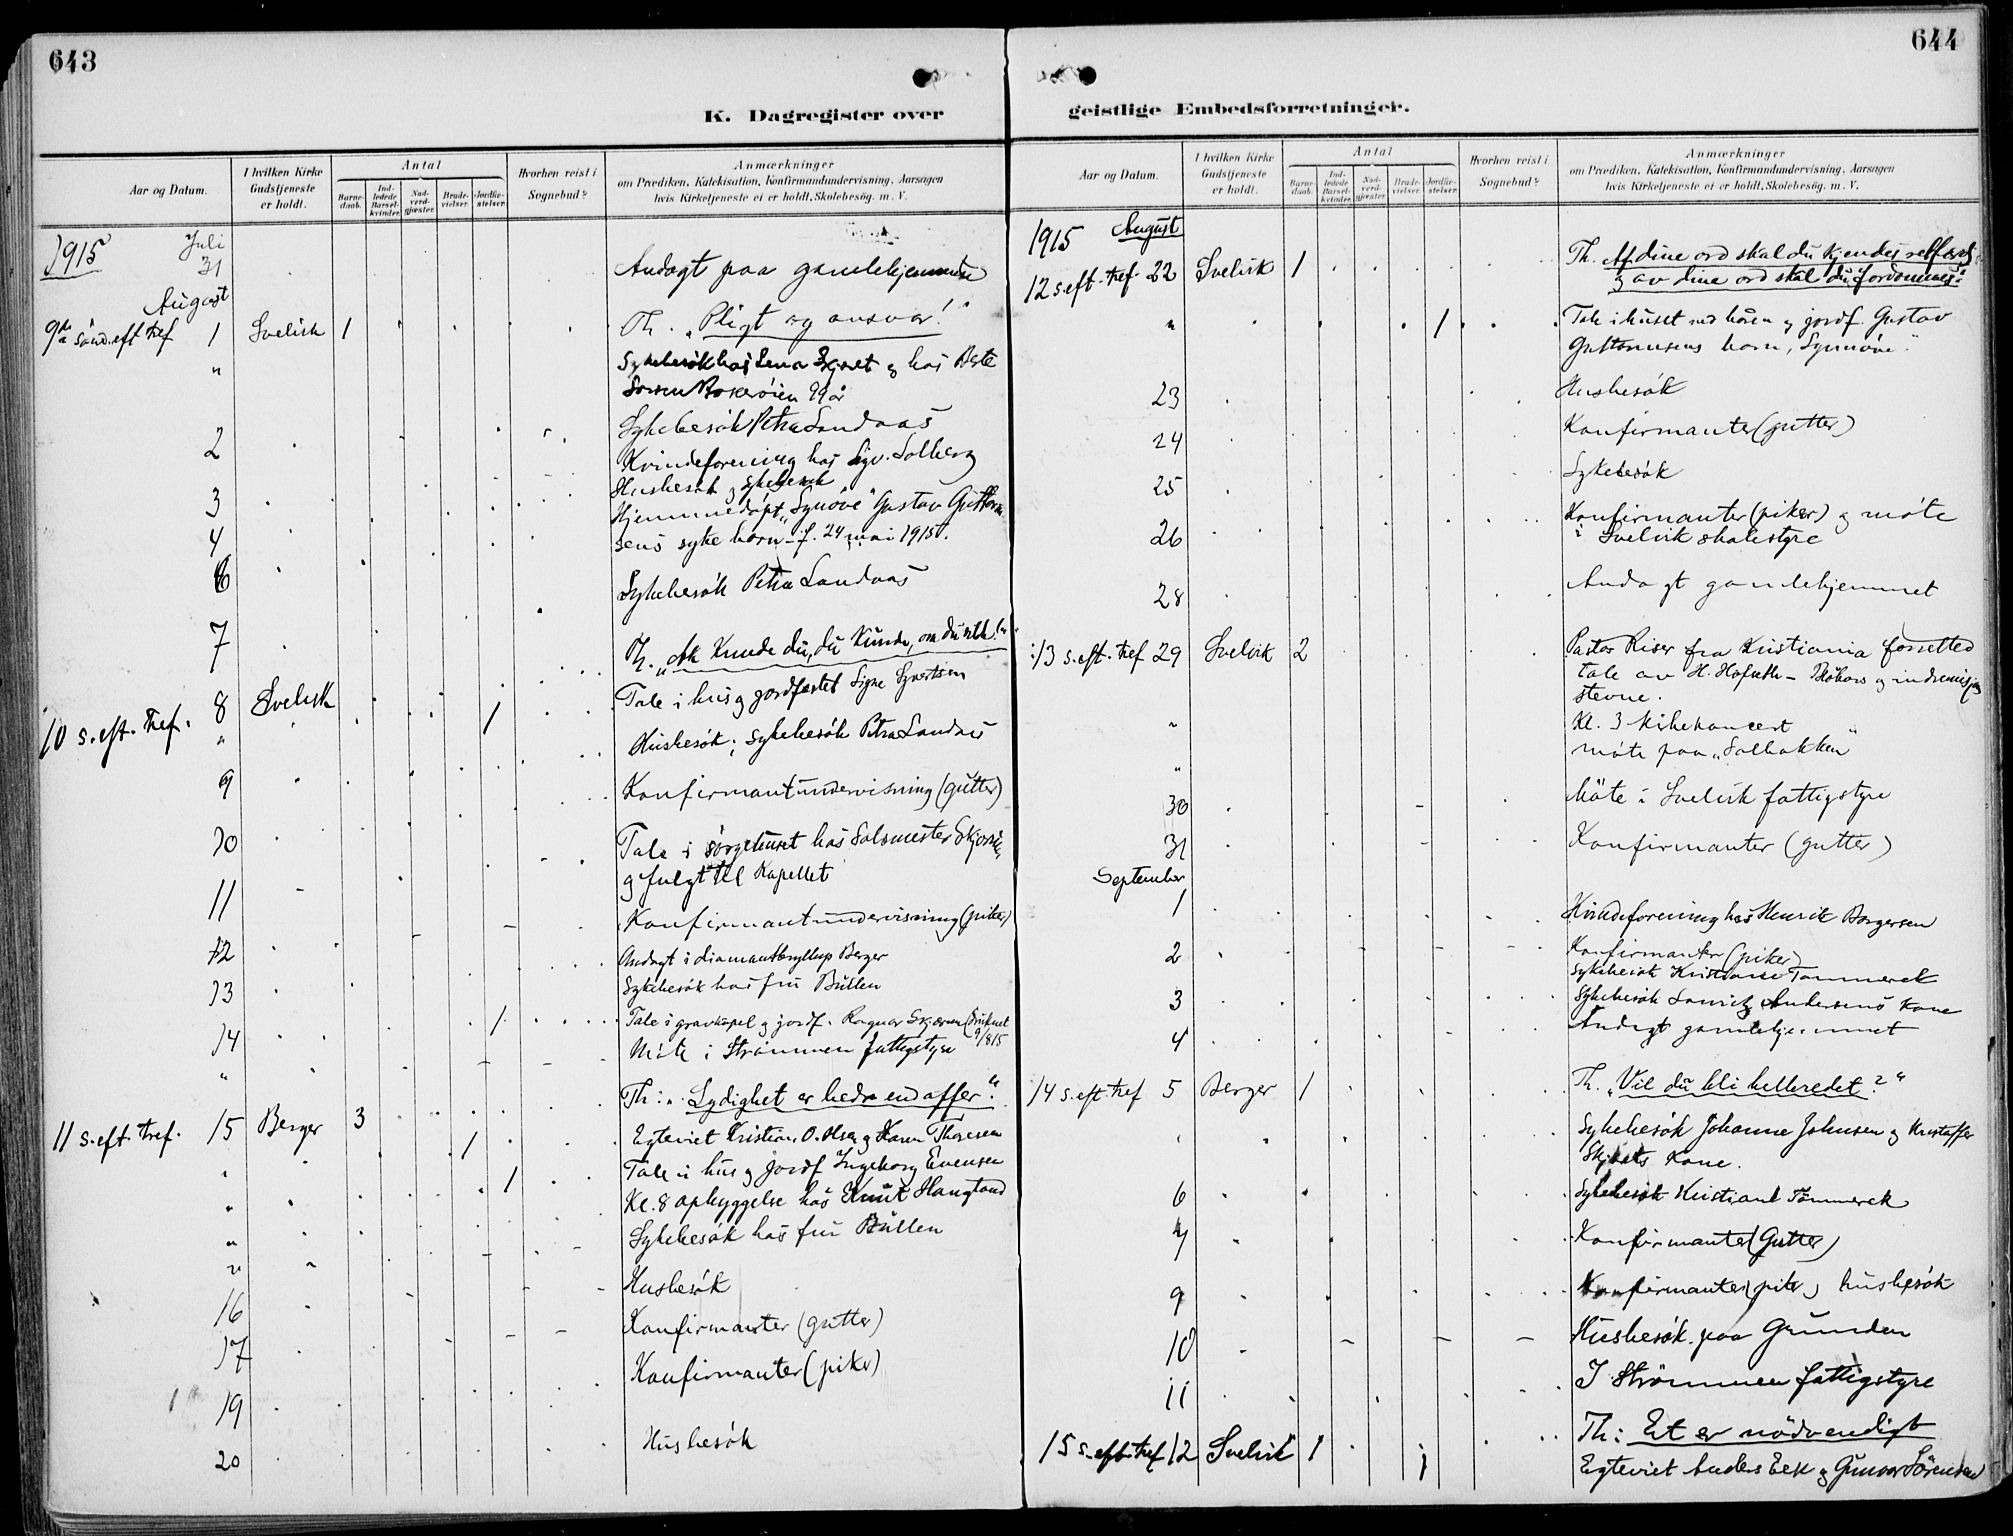 643
K. Dagregister over
Aar og Datum.
I hvilken Kirke
Gudstjeneste
er holdt.
Antal
Barne-
daab.
Ind-
ledede
Barsel-
kvinder.
Nad-
verd-
gjæster.
Brude-
vielser.
Jordfæ-
stelser.
Hvorhen reist i
Sognebud?
Anmærkninger
om Prædiken, Katekisation, Konfirmandundervisning, Aarsagen
hvis Kirketjeneste ei er holdt, Skolebesøg. m. V.
1915 Juli
31 Andagt paa gamlehjemmet
August
9de sönd. eft tref 1 Svelvik 1 Th. "Pligt og ansvar!"
" Sykebesök hos Lena og hos Beate
99 år
2 Sykebesök Petra Sandaas
Kvindeforening hos Sigv. Solberg
3 Husbesök og sykebesök
4 Hjemmedöpt "Synöve" Gustav Guttorm-
sens syke barn - f. 24 mai 1915.
6 Sykebesök Petra Sandaas
7
10 s. eft. tref. 8 Svelvik Th. "Ak kunde du, du kunde, om du vilde!"
" 1 Tale i hus og jordfæstet Signe Syvertsen
9 Husbesök; sykebesök Petra Sandaas
10 Konfirmantundervisning (gutter)
11 Tale i sörgehuset hos
og fulgt til Kapellet
12 Konfirmantundervisning (piker)
13 Andagt i diamantbryllup Berger
Sykebesök hos fru Büllen
14 1 Tale i gravkapel og jordf. Ragnar Skjørsen (druknet
9/8 15
" Möte i Strömmen fattigstyre
11 s. eft. tref. 15 Berger 3 Th: "Lydighet er bedre end offer."
" 1 Egteviet Kristian O. Olsen og Karen Thoresen
" 1 Tale i hus og jordf Ingeborg Evensen
" Kl. 8 opbyggelse hos Knut Haugland
" Sykebesök hos fru Büllen
16 Husbesök
17 Konfirmanter (gutter)
19 Konfirmanter (piker)
20 Husbesök
644
geistlige Embedsforretninger.
Aar og Datum.
I hvilken Kirke
Gudstjeneste
er holdt.
Antal
Barne-
daab.
Ind-
ledede
Barsel-
kvinder.
Nad-
verd-
gjæster.
Brude-
vielser.
Jordfæ-
stelser.
Hvorhen reist i
Sognebud?
Anmærkninger
om Prædiken, Katekisation, Konfirmandundervisning, Aarsagen
hvis Kirketjeneste ei er holdt, Skolebesøg. m. V.
1915 August
12 s. eft. tref. 22 Svelvik 1 Th. "Af dine ord skal du kjendes retfærdig
og av dine ord skal du fordömmes."
" 1 Tale i huset ved båren og jordf. Gustav
Guttormsens barn, "Synnöve".
23 Husbesök
24 Konfirmanter (gutter)
25 Sykebesök
26 Konfirmanter (piker) og möte
i Svelvik skolestyre
28 Andagt gamlehjemmet
13 s. eft. tref 29 Svelvik 2 Pastor Riser fra Kristiania forretted
tale av H. Hafseth - og indremisjons
stevne.
" Kl. 3 kirkekoncert
" möte paa "Solbakken"
30 Möte i Svelvik fattigstyre
31 Konfirmanter (gutter)
September
1 Kvindeforening hos Henrik Borgersen
2 Konfirmanter (piker)
Sykebesök Kristiane Tömmerek
3 Sykebesök Lauritz Andersens kone
4 Andagt gamlehjemmet
14 s. eft. tref 5 Berger 1 Th. "Vil du bli helbredet?"
" Sykebesök Johanne Johnsen og Kristoffer
kone.
6 Sykebesök Kristiane Tömmerek
7 Konfirmanter (Gutter)
9 Konfirmanter (piker) husbesök
10 Husbesök paa Grunden
11 I Strömmen fattigstyre
15 s. eft. tref 12 Svelvik 1 Th: Et er nödvendigt
1 Egteviet Anders Eek og Gunvor Sörensen